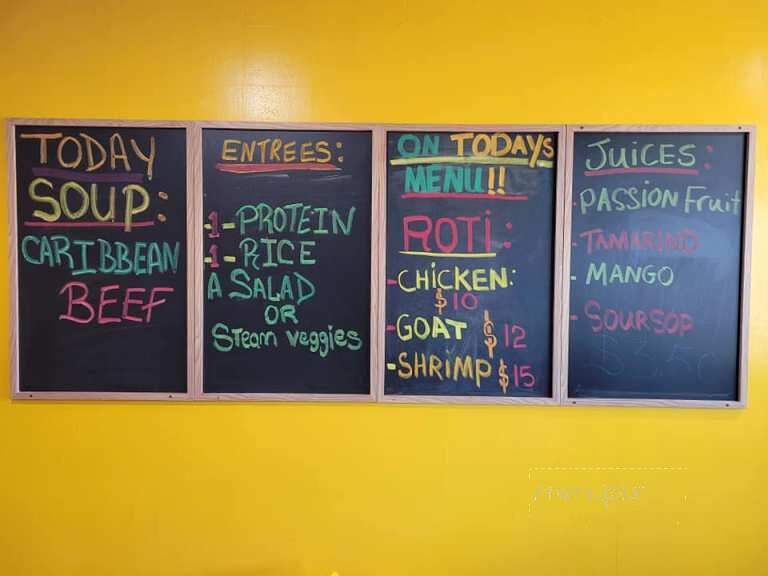 TODAY
SOUP:
CARIBBEAN
BEEF
ENTREES:
1-PROTEIN
1-RICE
A SALAD
OR
Steam veggies
ON TODAYs
MENU!!
ROTI:
-CHICKEN:
$10
-GOAT $12
-SHRIMP $15
JUICES:
-PASSION Fruit
-TAMARIND
-MANGO
-SOURSOP